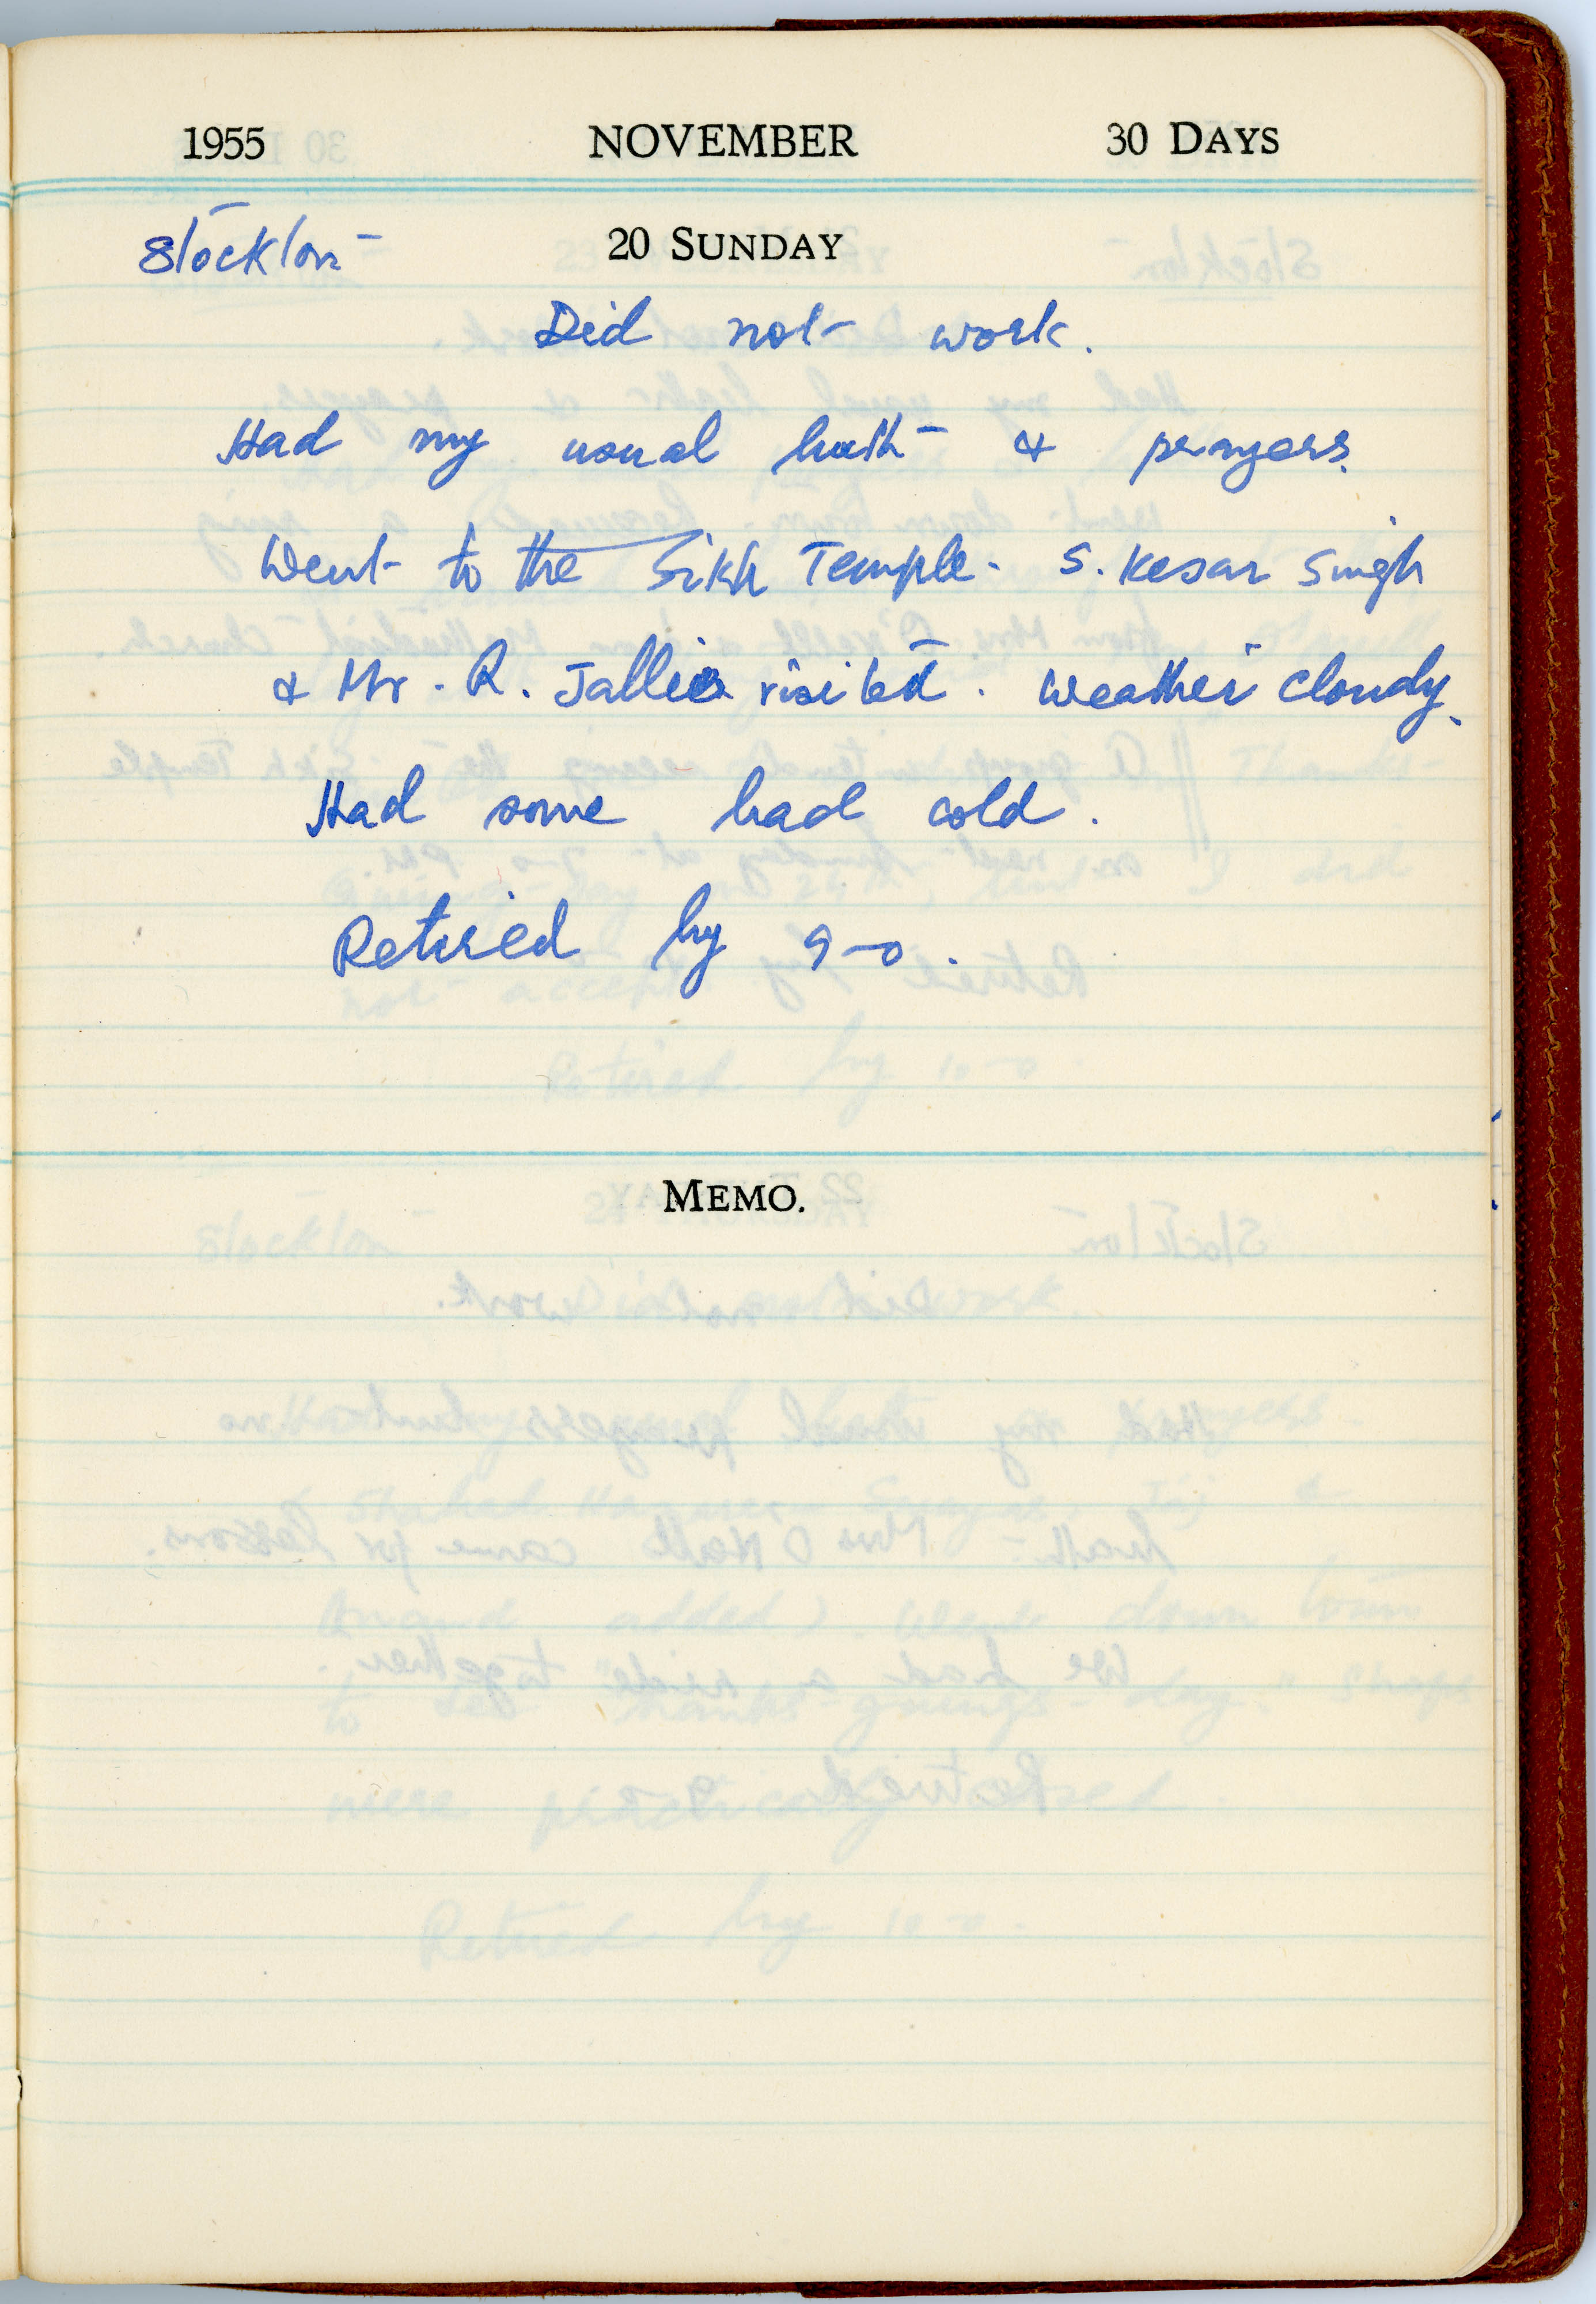 1955 NOVEMBER 30 DAYS
Stockton 20 SUNDAY
Did not work.
Had my usual bath & prayers.
Went to the Sikh Temple. S. Kesar Singh
& Mr. R. visited. Weather cloudy.
Had some bad cold.
Retired by 9-0.
MEMO.